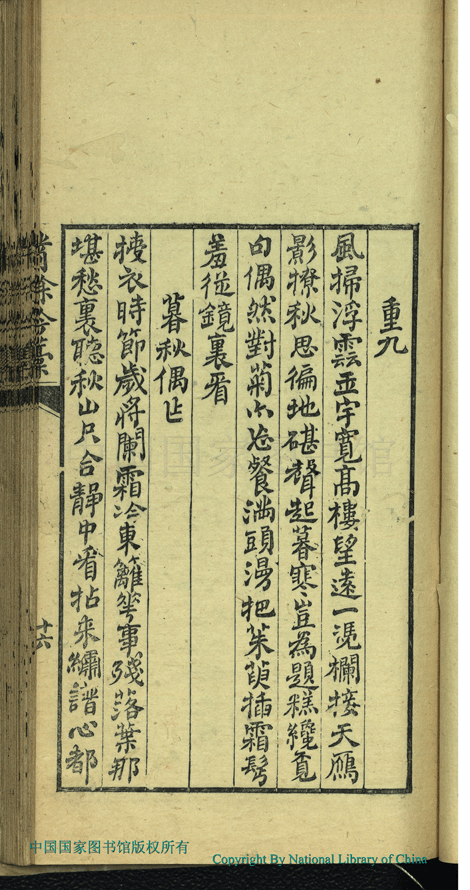 重九
風掃浮雲玉宇寬高樓望遠一凭欄接天鴈
影撩秋思徧地碪聲起暮寒豈為題糕纔覓
句偶然對菊亦忘餐滿頭漫把茱萸插霜髩
羞從鏡裏看
暮秋偶作
授衣時節歲將闌霜冷東籬花事殘落葉那
堪愁裏聽秋山只合靜中看拈来繡譜心都
繡餘吟藁
十六
中国国家图书馆
中国国家图书馆版权所有
Copyright By National Library of China